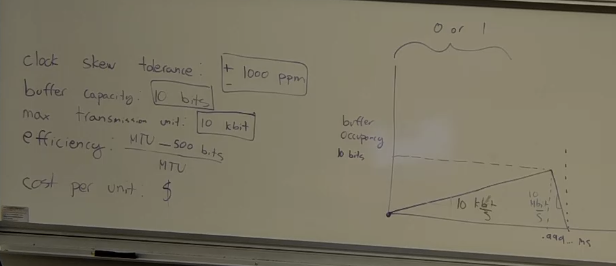 clock skew tolerance: + - 1000 ppm
buffer capacity: 10 bits
max transmission unit: 10 kbit
efficiency: MTU - 500 bits
MTU
cost per unit: $
0 or 1
buffer
occupancy
10 bits
10
10
s
s